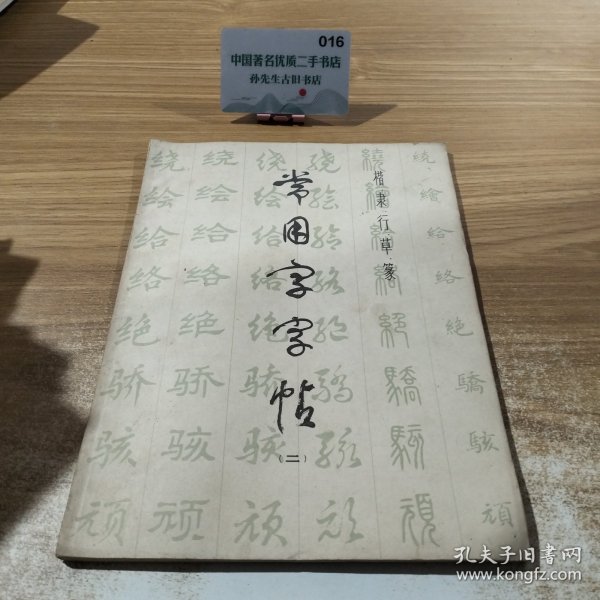 016
中国著名优质二手书店
孙先生古旧书店
常用字字帖
(二)
楷隶行草篆
绕 绕 绕 绕 繞 繞
绘 绘 绘 绘 繪 繪
给 给 给 给 給 給
络 络 络 络 絡 絡
绝 绝 绝 绝 絕 絕
骄 骄 骄 骄 驕 驕
骇 骇 骇 骇 駭 駭
顽 顽 顽 顽 頑 頑
孔夫子旧书网
www.kongfz.com